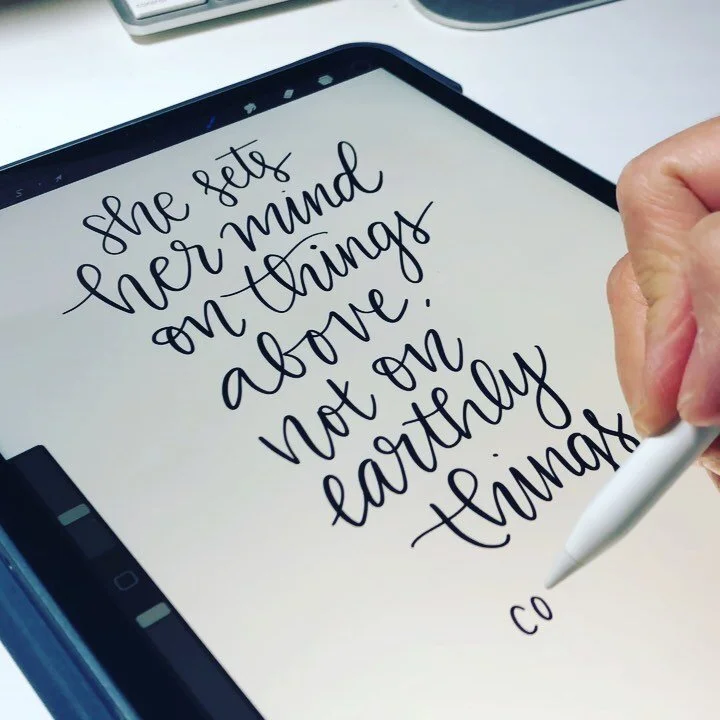 she sets
her mind
on things
above.
not on
earthly
things
CO